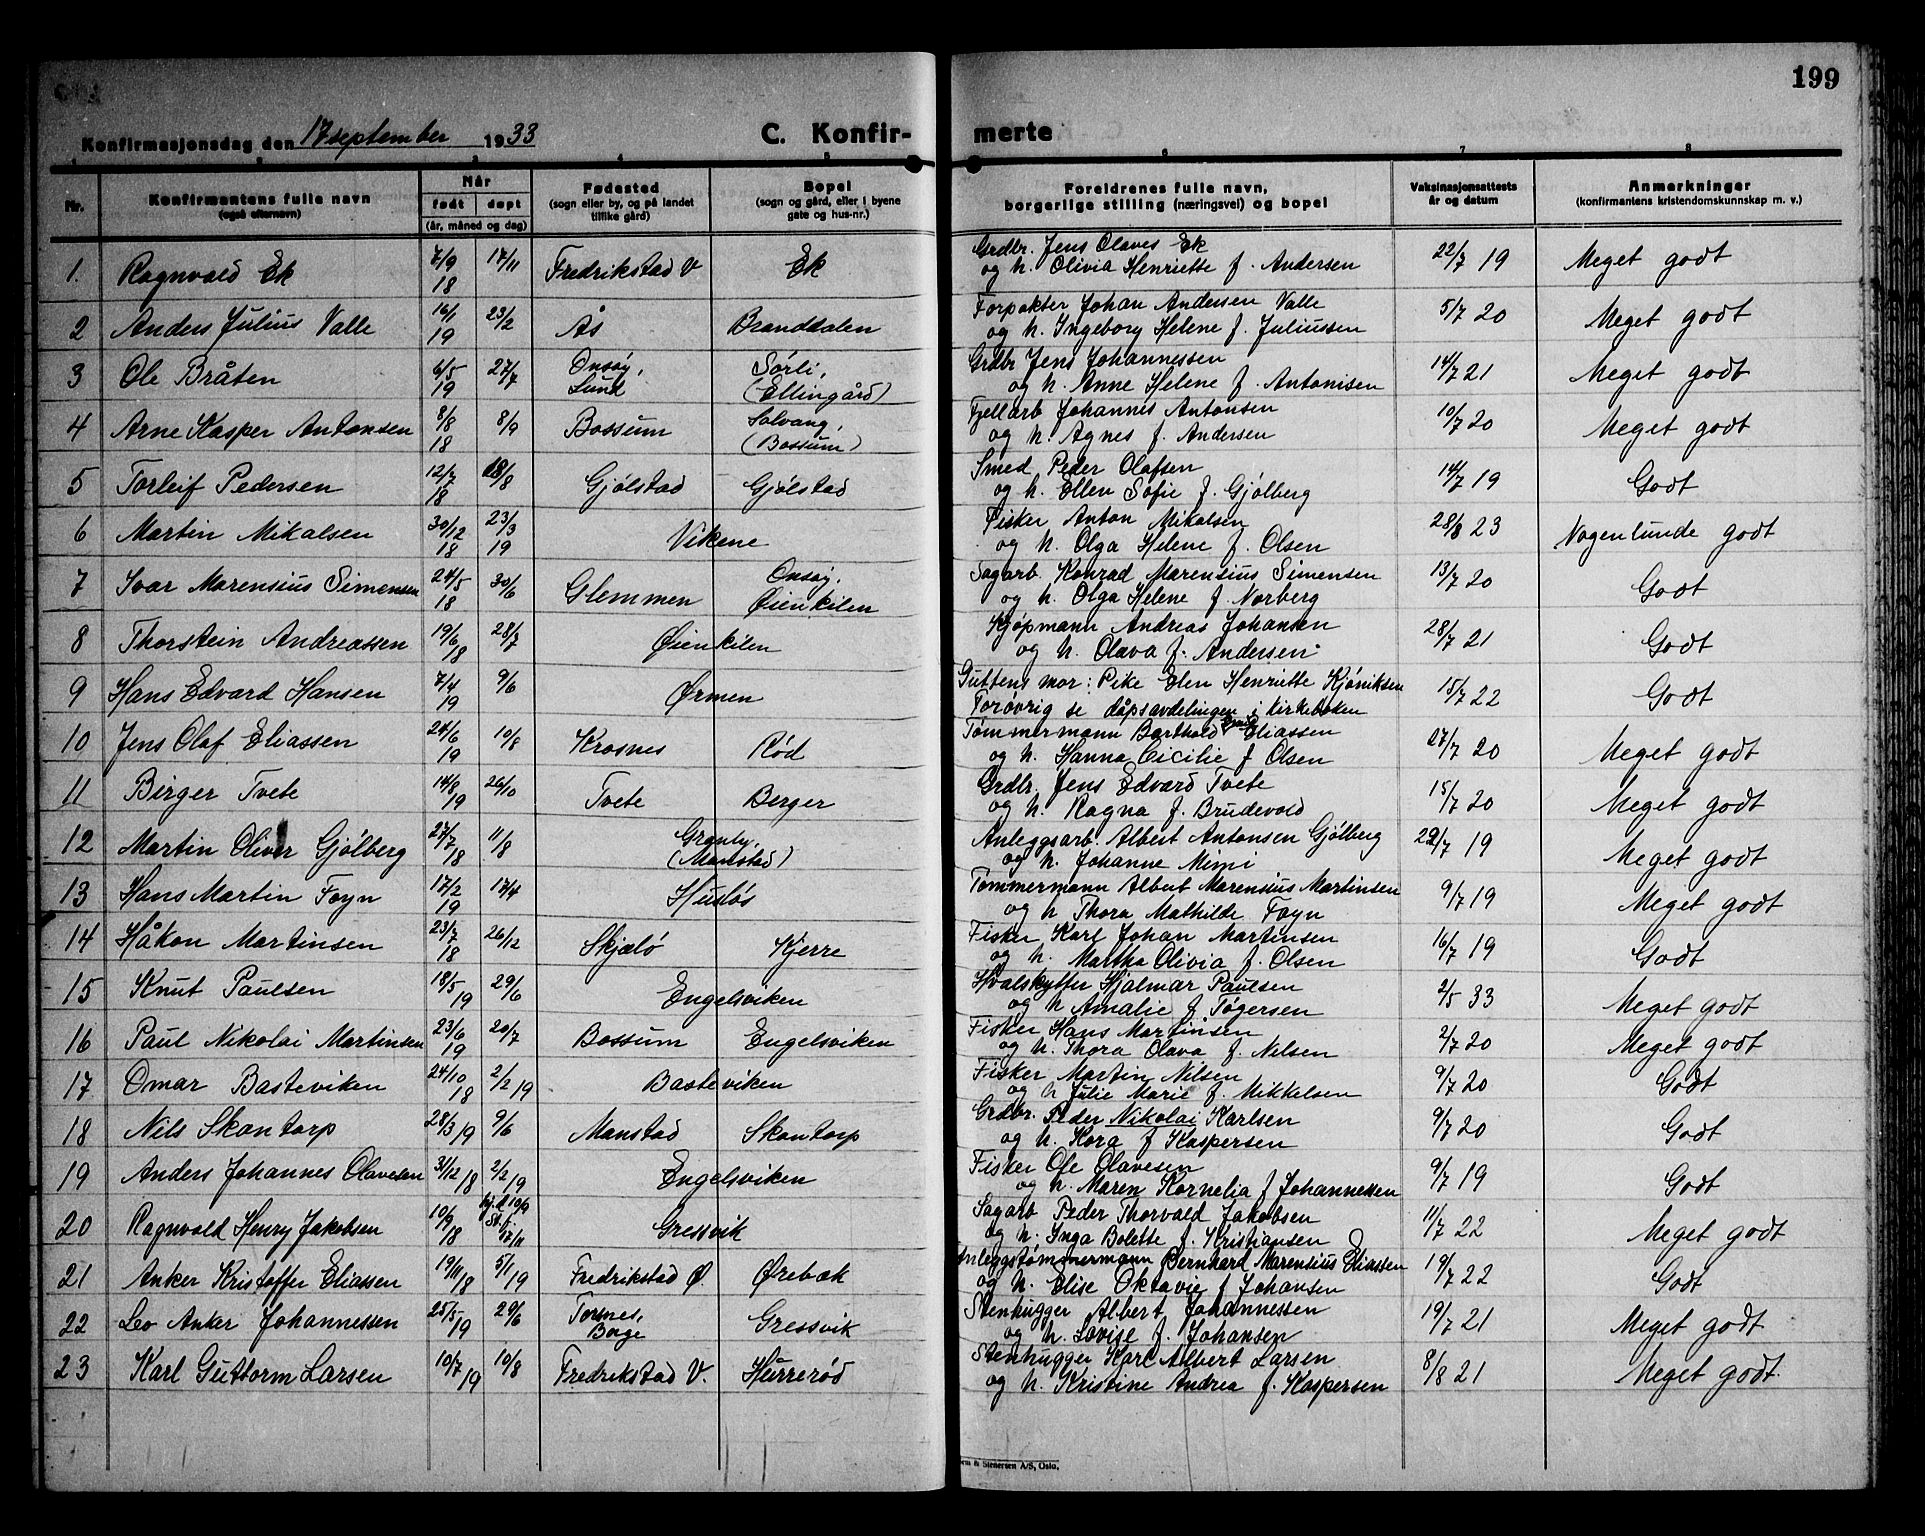 199
Konfirmasjonsdag den 17 september 1933
C. Konfir-
merte
1 2 3 4 5 6 7 8
Nr.
Konfirmantens fulle navn
(også efternavn)
Når
født
døpt
(år, måned og dag)
Fødested
(sogn eller by, og på landet
tillike gård)
Bopel
(sogn og gård, eller i byene
gate og hus-nr.)
Foreldrenes fulle navn,
borgerlige stilling (næringsvei) og bopel
Vaksinasjonsattests
år og datum
Anmerkninger
(konfirmantens kristendomskunnskap m. v.)
1. Ragnvald Ek 7/9 18 17/11 Fredrikstad V Ek Grdbr. Jens Olaves Ek
og h. Olivia Henriette f. Andersen 22/7 19 Meget godt
2 Anders Julius Valle 16/1 19 23/2 Ås Branddalen Forpakter Johan Andersen Valle
og h. Ingeborg Helene f. Juliussen 5/7 20 Meget godt
3 Ole Bråten 6/5 19 27/7 Onsøy, Lund Sørli, (Ellingård) Grdbr Jens Johannessen
og h. Anne Helene f. Antonisen 14/7 21 Meget godt
4 Arne Kasper Antonsen 8/8 18 8/9 Bossum Solvang, (Bossum) Fjellarb Johannes Antonsen
og h. Agnes f. Andersen 10/7 20 Meget godt
5 Torleif Pedersen 12/7 18 18/8 Gjølstad Gjølstad Smed Peder Olafsen
og h. Ellen Sofie f. Gjølberg 14/7 19 Godt
6 Martin Mikalsen 30/12 18 23/3 19 Vikene Fisker Anton Mikalsen
og h. Olga Helene f. Olsen 28/8 23 Nogenlunde godt
7 Ivar Marensius Simensen 24/5 18 30/6 Glemmen Onsøy, Øienkilen Sagarb. Konrad Marensius Simensen
og h. Olga Helene f. Norberg 13/7 20 Godt
8 Thorstein Andreassen 19/6 18 28/7 Øienkilen Kjøpmann Andreas Johansen
og h. Olava f. Andersen 28/7 21 Godt
9 Hans Edvard Hansen 7/4 19 9/6 Ørmen Guttens mor: Pike Elen Henriette Kjøniksen
Forøvrig se dåpsavdelingen i kirkeboken 15/7 22 Godt
10 Jens Olaf Eliassen 24/6 19 10/8 Krosnes Rød Tømmermann Barthold Eliassen
og h. Hanna Cicilie f Olsen 27/7 20 Meget godt
11 Birger Tvete 14/8 19 26/10 Tvete Berger Grdbr. Jens Edvard Tvete
og h. Ragna f. Brudevold 15/7 20 Meget godt
12 Martin Oliver Gjølberg 27/7 18 11/8 Granby, (Manstad) Anleggsarb. Albert Antonsen Gjølberg
og h. Johanne Mimi 29/7 19 Meget godt
13 Hans Martin Foyn 17/2 19 17/4 Husløs Tømmermann Albert Marensius Martinsen
og h Thora Mathilde Foyn 9/7 19 Meget godt
14 Håkon Martinsen 23/7 18 26/12 Skjælø Kjerre Fisker Karl Johan Martinsen
og h. Martha Olivia f. Olsen 16/7 19 Godt
15 Knut Paulsen 18/5 19 29/6 Engelsviken Hvalskytter Hjalmar Paulsen
og h Amalie f Tøgersen 2/5 33 Meget godt
16 Paul Nikolai Martinsen 23/6 19 20/7 Bossum Engelsviken Fisker Hans Martinsen
og h. Thora Olava f. Nilsen 2/7 20 Meget godt
17 Omar Basteviken 24/10 18 2/2 19 Basteviken Fisker Martin Nilsen
og h Julie Marie f. Mikkelsen 9/7 20 Godt
18 Nils Skontorp 28/3 19 9/6 Manstad Skontorp Grdbr. Peder Nikolai Karlsen
og h. Kora f Kaspersen 9/7 20 Godt
19 Anders Johannes Olavesen 31/12 18 2/2 19 Engelsviken Fisker Ole Olavesen
og h. Maren Kornelia f Johannessen 9/7 19 Godt
20 Ragnvald Henry Jakobsen 10/9 18 hj.d 10/9 st. f. 17/11 Gressvik Sagarb Peder Thorvald Jakobsen
og h. Inga Bolette f. Kristiansen 11/7 22 Meget godt
21 Anker Kristoffer Eliassen 19/11 18 5/1 19 Fredrikstad Ø. Ørebæk Anleggstømmermann Bernhard Marensius Eliassen
og h. Elise Oktavie f Johansen 19/7 22 Godt
22 Leo Anker Johannessen 25/5 19 29/6 Torsnes, Borge Gressvik Stenhugger Albert Johannessen
og h. Lovise f. Johansen 19/7 21 Meget godt
23 Karl Guttorm Larsen 10/7 19 10/8 Fredrikstad V. Hurrerød Stenhugger Karl Albert Larsen
og h. Kristine Andrea f. Kaspersen 8/8 21 Meget godt.
& Stenersen A/S, Oslo.